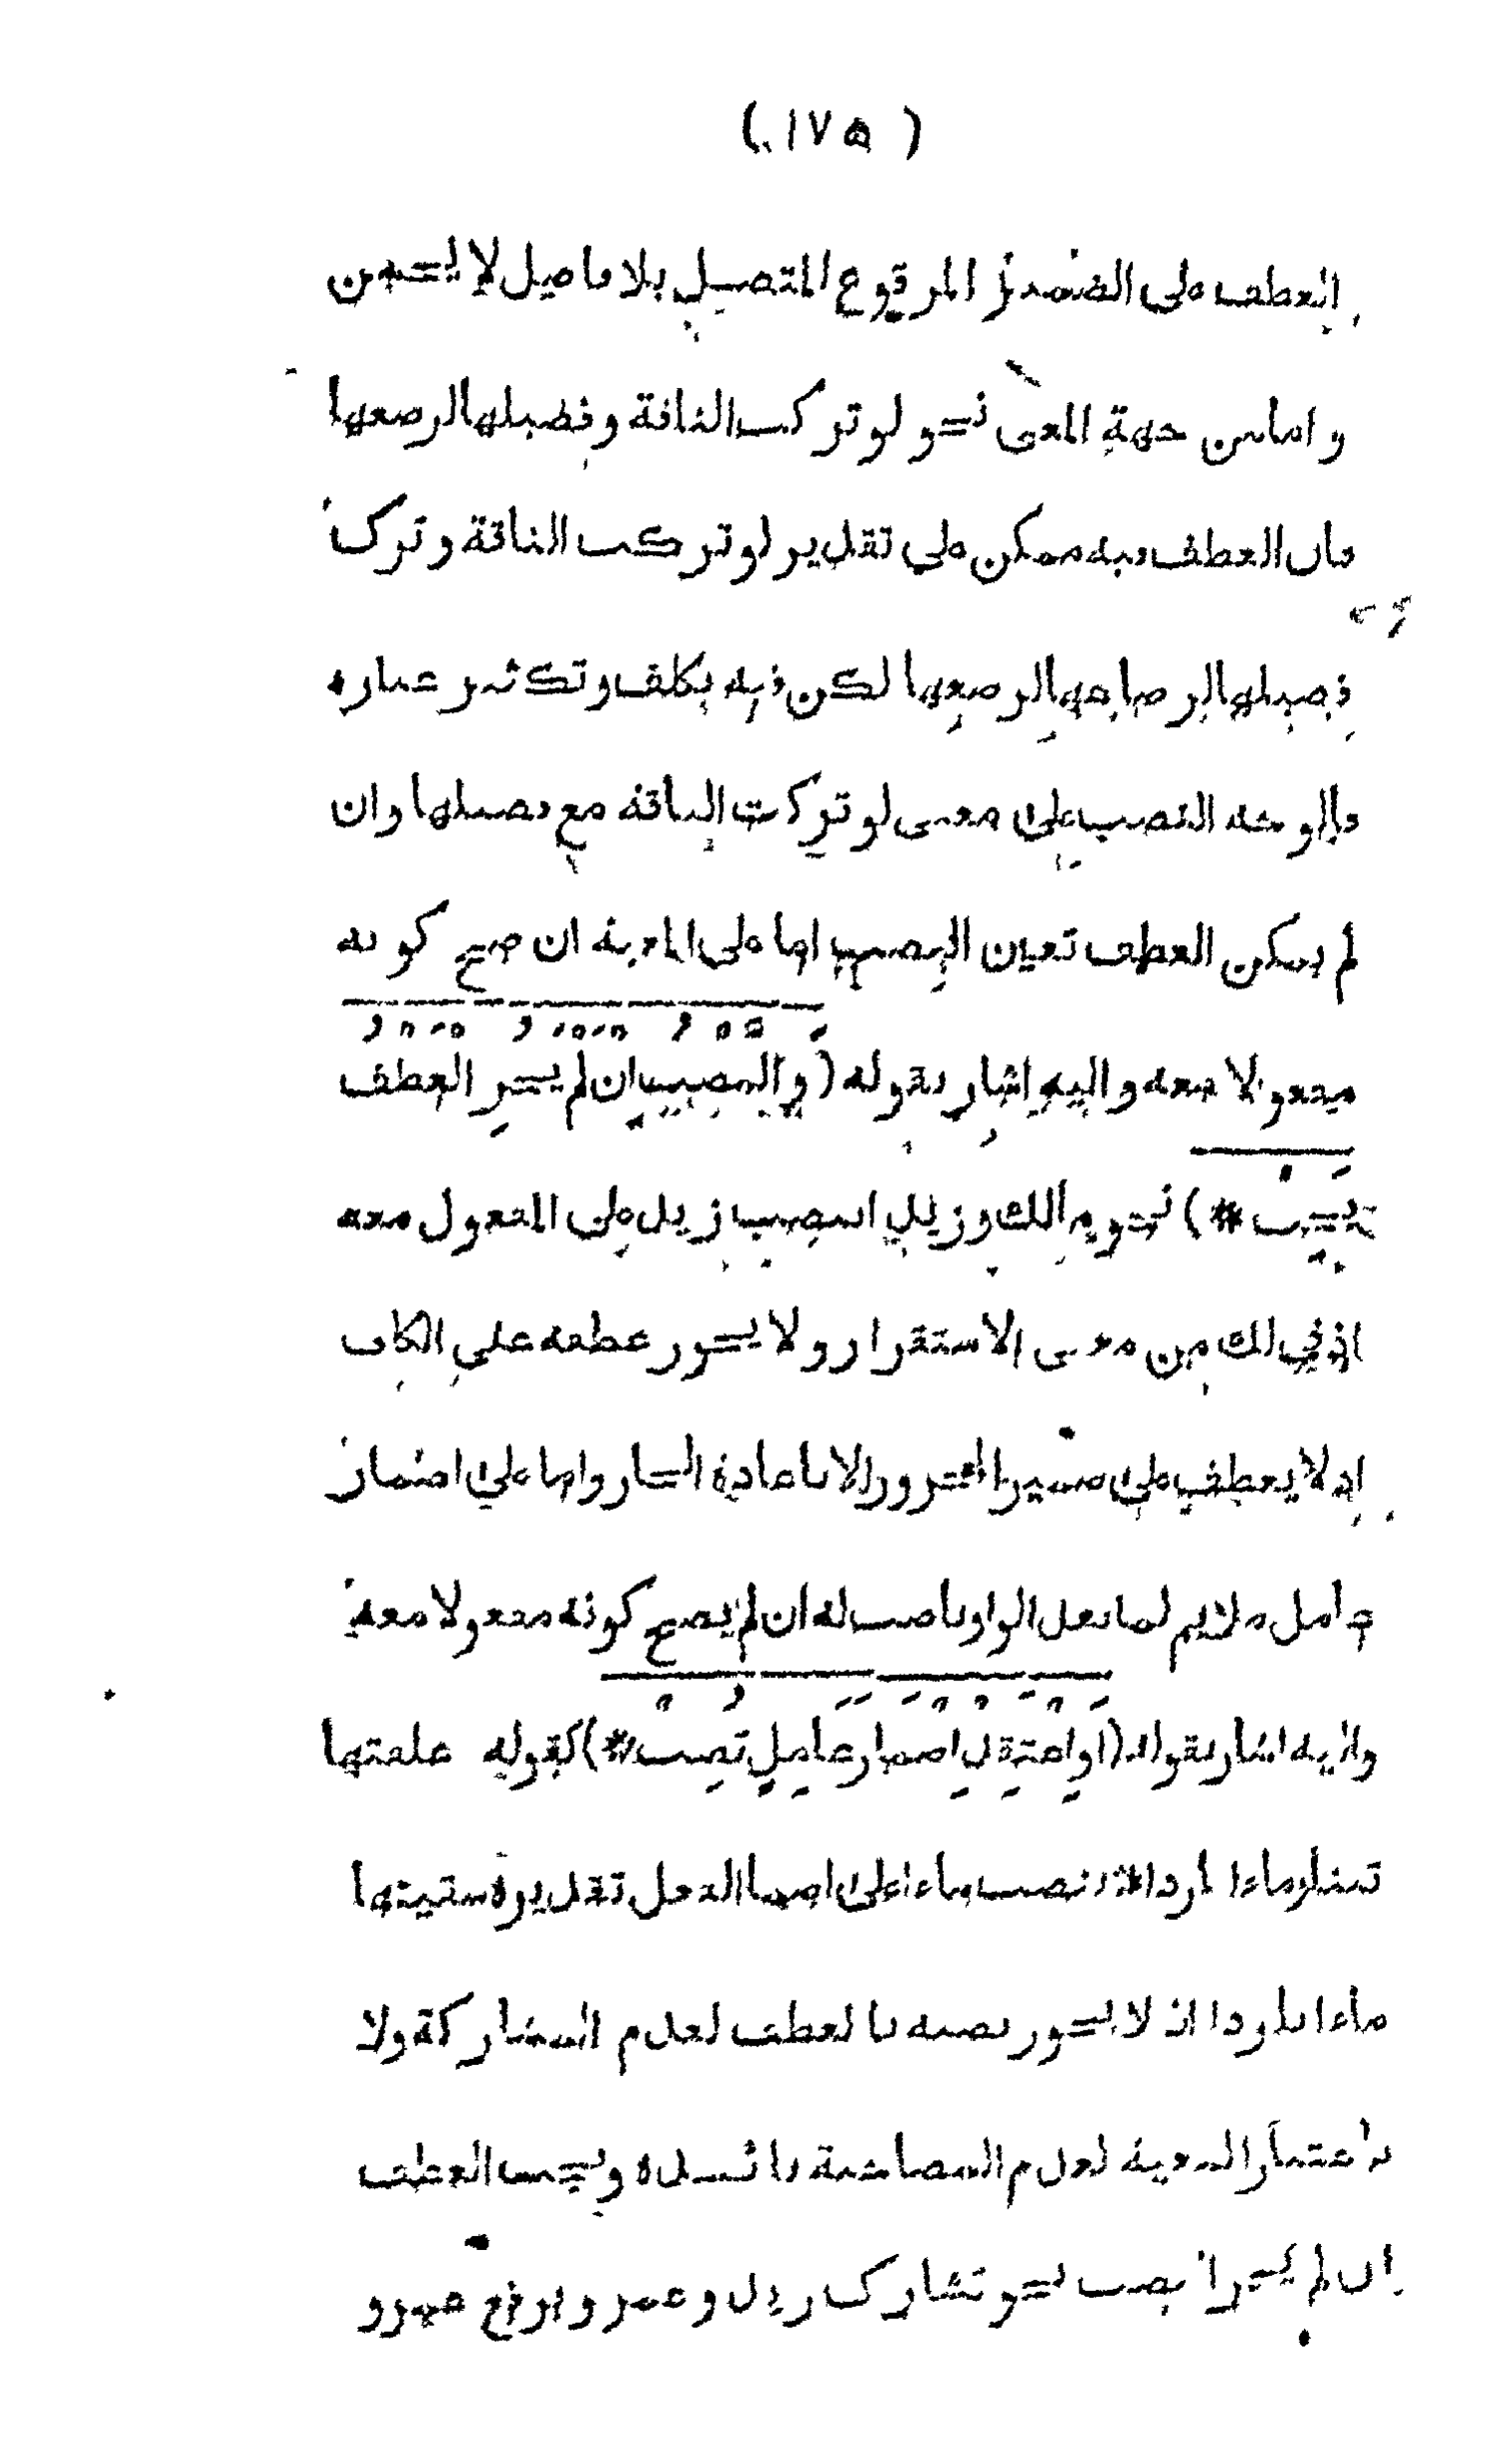 (١٧٥)
العطف على الضمير المرفوع المتصل بلا فاصل لا يحسن
واما من جهة المعنى نحو لو تركت الناقة وفصيلها لرضعها
فان العطف فيه ممكن على تقدير لو تركت الناقة وترك
فصيلها لرضاعها لرضعها لكن فيه تكلف وتكثير عبارة
فالوجه النصب على معنى لو تركت الناقة مع فصيلها وان
لم يمكن العطف تعين النصب اما على المعية ان صح كونه
مفعولا معه واليه اشار بقوله (وَالنَّصْبُ اِن لَم يَجُزِ العَطْفُ
يَجِبْ *) نحو مالك وزيدا بنصب زيد على المفعول معه
اذ في لك من معنى الاستقرار ولا يجوز عطفه على الكاف
اذ لا يعطف على ضمير المجرور الا باعادة الجار واما على اضمار
عامل ملايم لما بعد الواو ناصب له ان لم يصح كونه مفعولا معه
واليه اشار بقوله (اَوِ اعْتَقِدْ اِضْمَارَ عَامِلٍ تُصِبْ *) كقوله علفتها
تبنا وماءا باردا نصب ماءا على اضمار الفعل تقديره سقيتها
ماءا باردا اذ لا يجوز نصبه بالعطف لعدم المشاركة ولا
باعتبار المعية لعدم المصاحبة ويجب العطف
ان لم يجز النصب نحو تشارك زيد وعمرو برفع عمرو